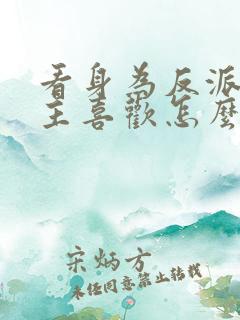 看身為反派
主喜歡怎麼
宋炳方
未经同意禁止转载